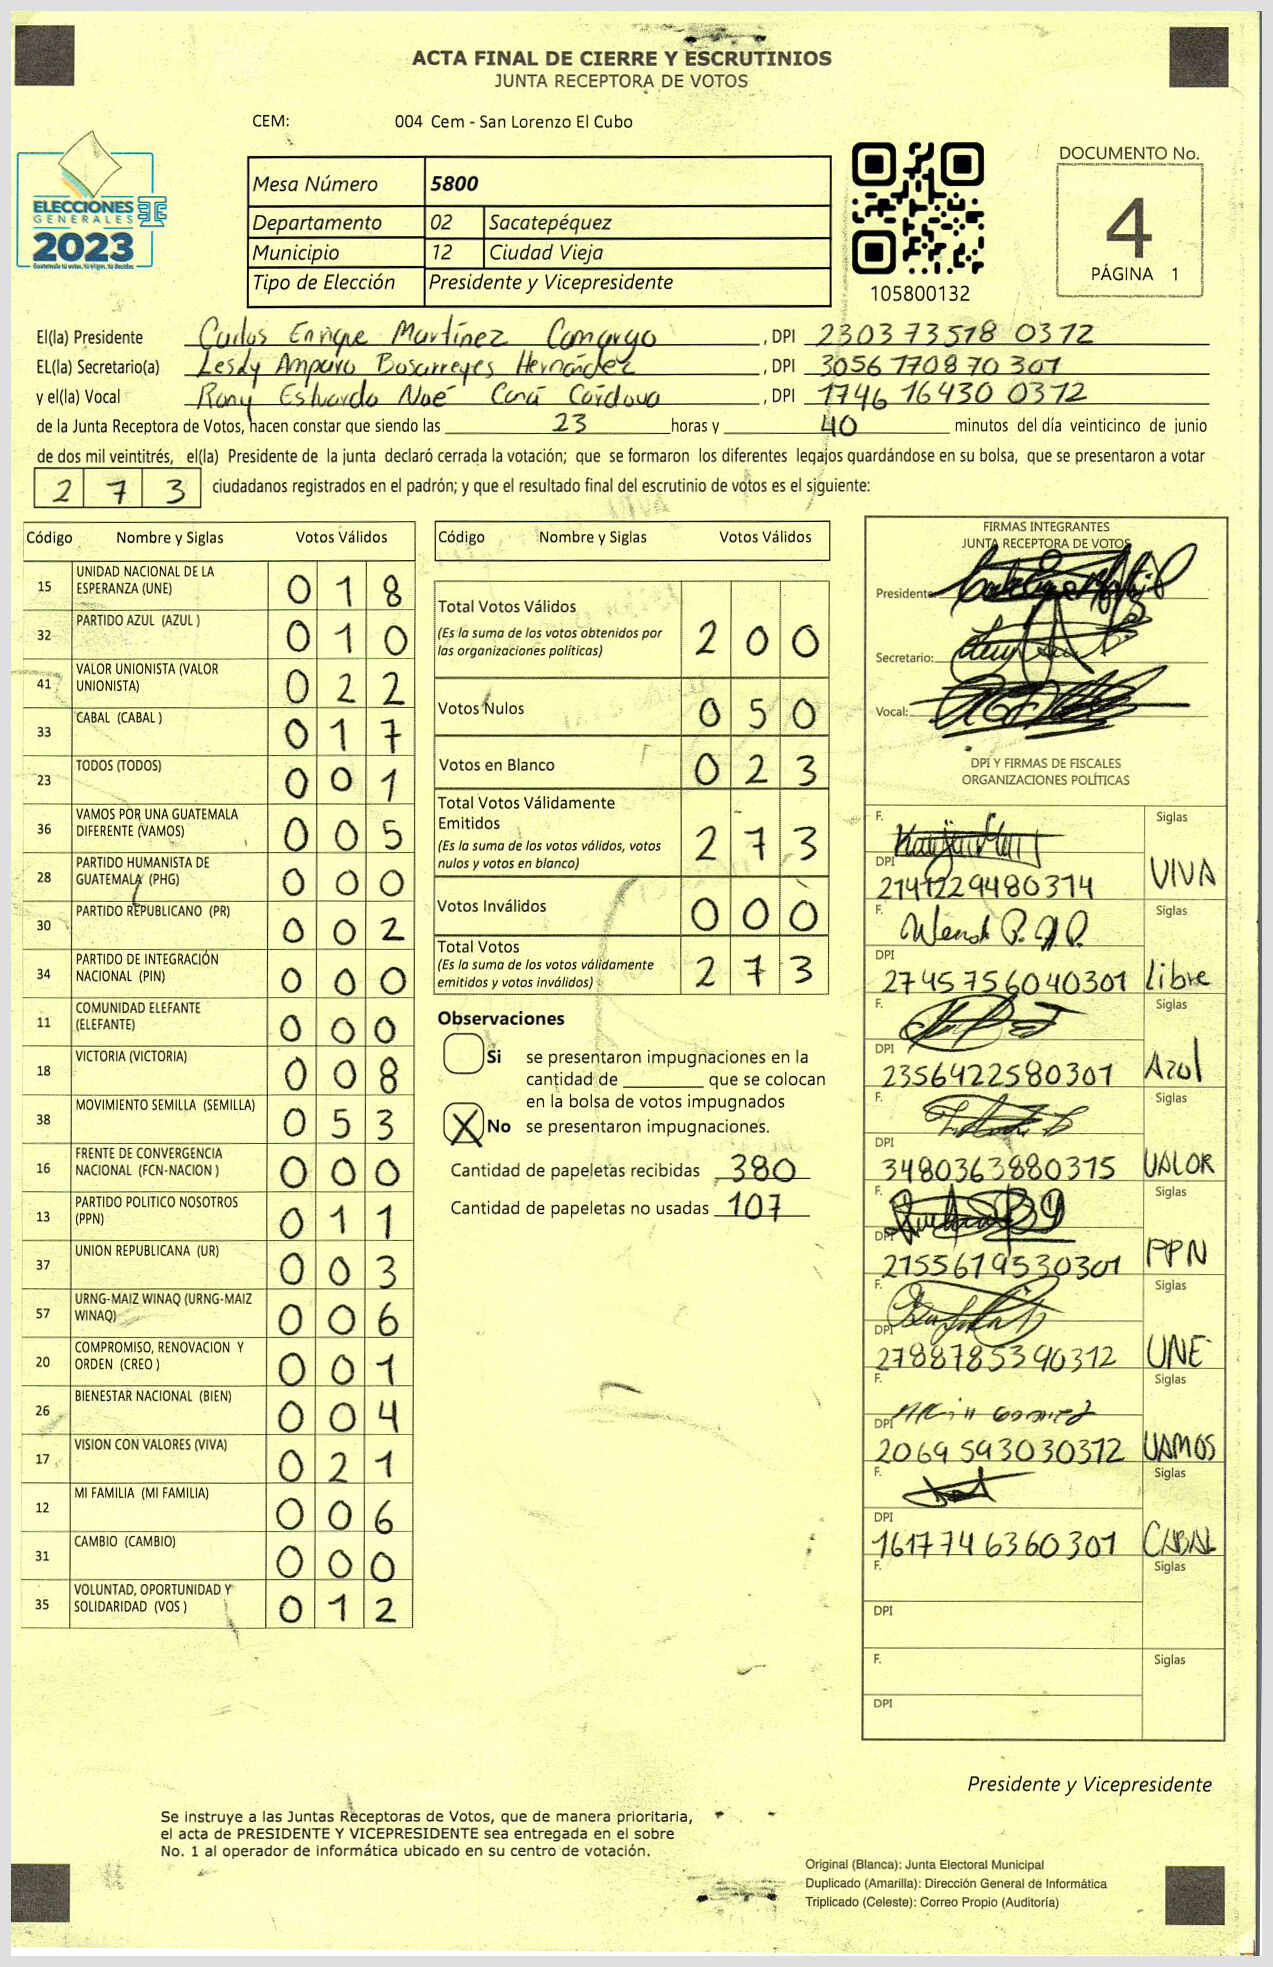 ACTA FINAL DE CIERRE Y ESCRUTINIOS
JUNTA RECEPTORA DE VOTOS
CEM: 004 Cem - San Lorenzo El Cubo
ELECCIONES
GENERALES
2023
Guatemala tú votas, tú eliges, tú decides
Mesa Número 5800
Departamento 02 Sacatepéquez
Municipio 12 Ciudad Vieja
Tipo de Elección Presidente y Vicepresidente
105800132
DOCUMENTO No.
4
PÁGINA 1
El(la) Presidente Carlos Enrique Martínez Camargo, DPI 2303 73518 0312
EL(la) Secretario(a) Lesdy Amparo Bosarreyes Hernández, DPI 3056 17087 0 301
y el(la) Vocal Rony Estuardo Noé Caná Córdova, DPI 1746 16430 0312
de la Junta Receptora de Votos, hacen constar que siendo las 23 horas y 40 minutos del día veinticinco de junio
de dos mil veintitrés, el(la) Presidente de la junta declaró cerrada la votación; que se formaron los diferentes legajos quardándose en su bolsa, que se presentaron a votar
2 7 3 ciudadanos registrados en el padrón; y que el resultado final del escrutinio de votos es el siguiente:
Código Nombre y Siglas Votos Válidos
15 UNIDAD NACIONAL DE LA ESPERANZA (UNE) 0 1 8
32 PARTIDO AZUL (AZUL ) 0 1 0
41 VALOR UNIONISTA (VALOR UNIONISTA) 0 2 2
33 CABAL (CABAL ) 0 1 7
23 TODOS (TODOS) 0 0 1
36 VAMOS POR UNA GUATEMALA DIFERENTE (VAMOS) 0 0 5
28 PARTIDO HUMANISTA DE GUATEMALA (PHG) 0 0 0
30 PARTIDO REPUBLICANO (PR) 0 0 2
34 PARTIDO DE INTEGRACIÓN NACIONAL (PIN) 0 0 0
11 COMUNIDAD ELEFANTE (ELEFANTE) 0 0 0
18 VICTORIA (VICTORIA) 0 0 8
38 MOVIMIENTO SEMILLA (SEMILLA) 0 5 3
16 FRENTE DE CONVERGENCIA NACIONAL (FCN-NACION ) 0 0 0
13 PARTIDO POLITICO NOSOTROS (PPN) 0 1 1
37 UNION REPUBLICANA (UR) 0 0 3
57 URNG-MAIZ WINAQ (URNG-MAIZ WINAQ) 0 0 6
20 COMPROMISO, RENOVACION Y ORDEN (CREO ) 0 0 1
26 BIENESTAR NACIONAL (BIEN) 0 0 4
17 VISION CON VALORES (VIVA) 0 2 1
12 MI FAMILIA (MI FAMILIA) 0 0 6
31 CAMBIO (CAMBIO) 0 0 0
35 VOLUNTAD, OPORTUNIDAD Y SOLIDARIDAD (VOS ) 0 1 2
Código Nombre y Siglas Votos Válidos
Total Votos Válidos 2 0 0
(Es la suma de los votos obtenidos por
las organizaciones políticas)
Votos Nulos 0 5 0
Votos en Blanco 0 2 3
Total Votos Válidamente
Emitidos 2 7 3
(Es la suma de los votos válidos, votos
nulos y votos en blanco)
Votos Inválidos 0 0 0
Total Votos 2 7 3
(Es la suma de los votos válidamente
emitidos y votos inválidos)
Observaciones
Si se presentaron impugnaciones en la
cantidad de ________ que se colocan
en la bolsa de votos impugnados
X No se presentaron impugnaciones.
Cantidad de papeletas recibidas 380
Cantidad de papeletas no usadas 107
FIRMAS INTEGRANTES
JUNTA RECEPTORA DE VOTOS
Presidente:
Secretario:
Vocal:
DPI Y FIRMAS DE FISCALES
ORGANIZACIONES POLÍTICAS
F. Siglas
DPI 2141229480314 VIVA
F. Siglas
DPI 2745756040301 Libre
F. Siglas
DPI 2356422580301 Azul
F. Siglas
DPI 3480363880315 VALOR
F. Siglas
DPI 2155619530301 PPN
F. Siglas
DPI 2788785390312 UNE
F. Siglas
DPI 2069593030312 VAMOS
F. Siglas
DPI 1617746360301 CABAL
F. Siglas
DPI
F. Siglas
DPI
Presidente y Vicepresidente
Se instruye a las Juntas Receptoras de Votos, que de manera prioritaria,
el acta de PRESIDENTE Y VICEPRESIDENTE sea entregada en el sobre
No. 1 al operador de informática ubicado en su centro de votación.
Original (Blanca): Junta Electoral Municipal
Duplicado (Amarilla): Dirección General de Informática
Triplicado (Celeste): Correo Propio (Auditoría)